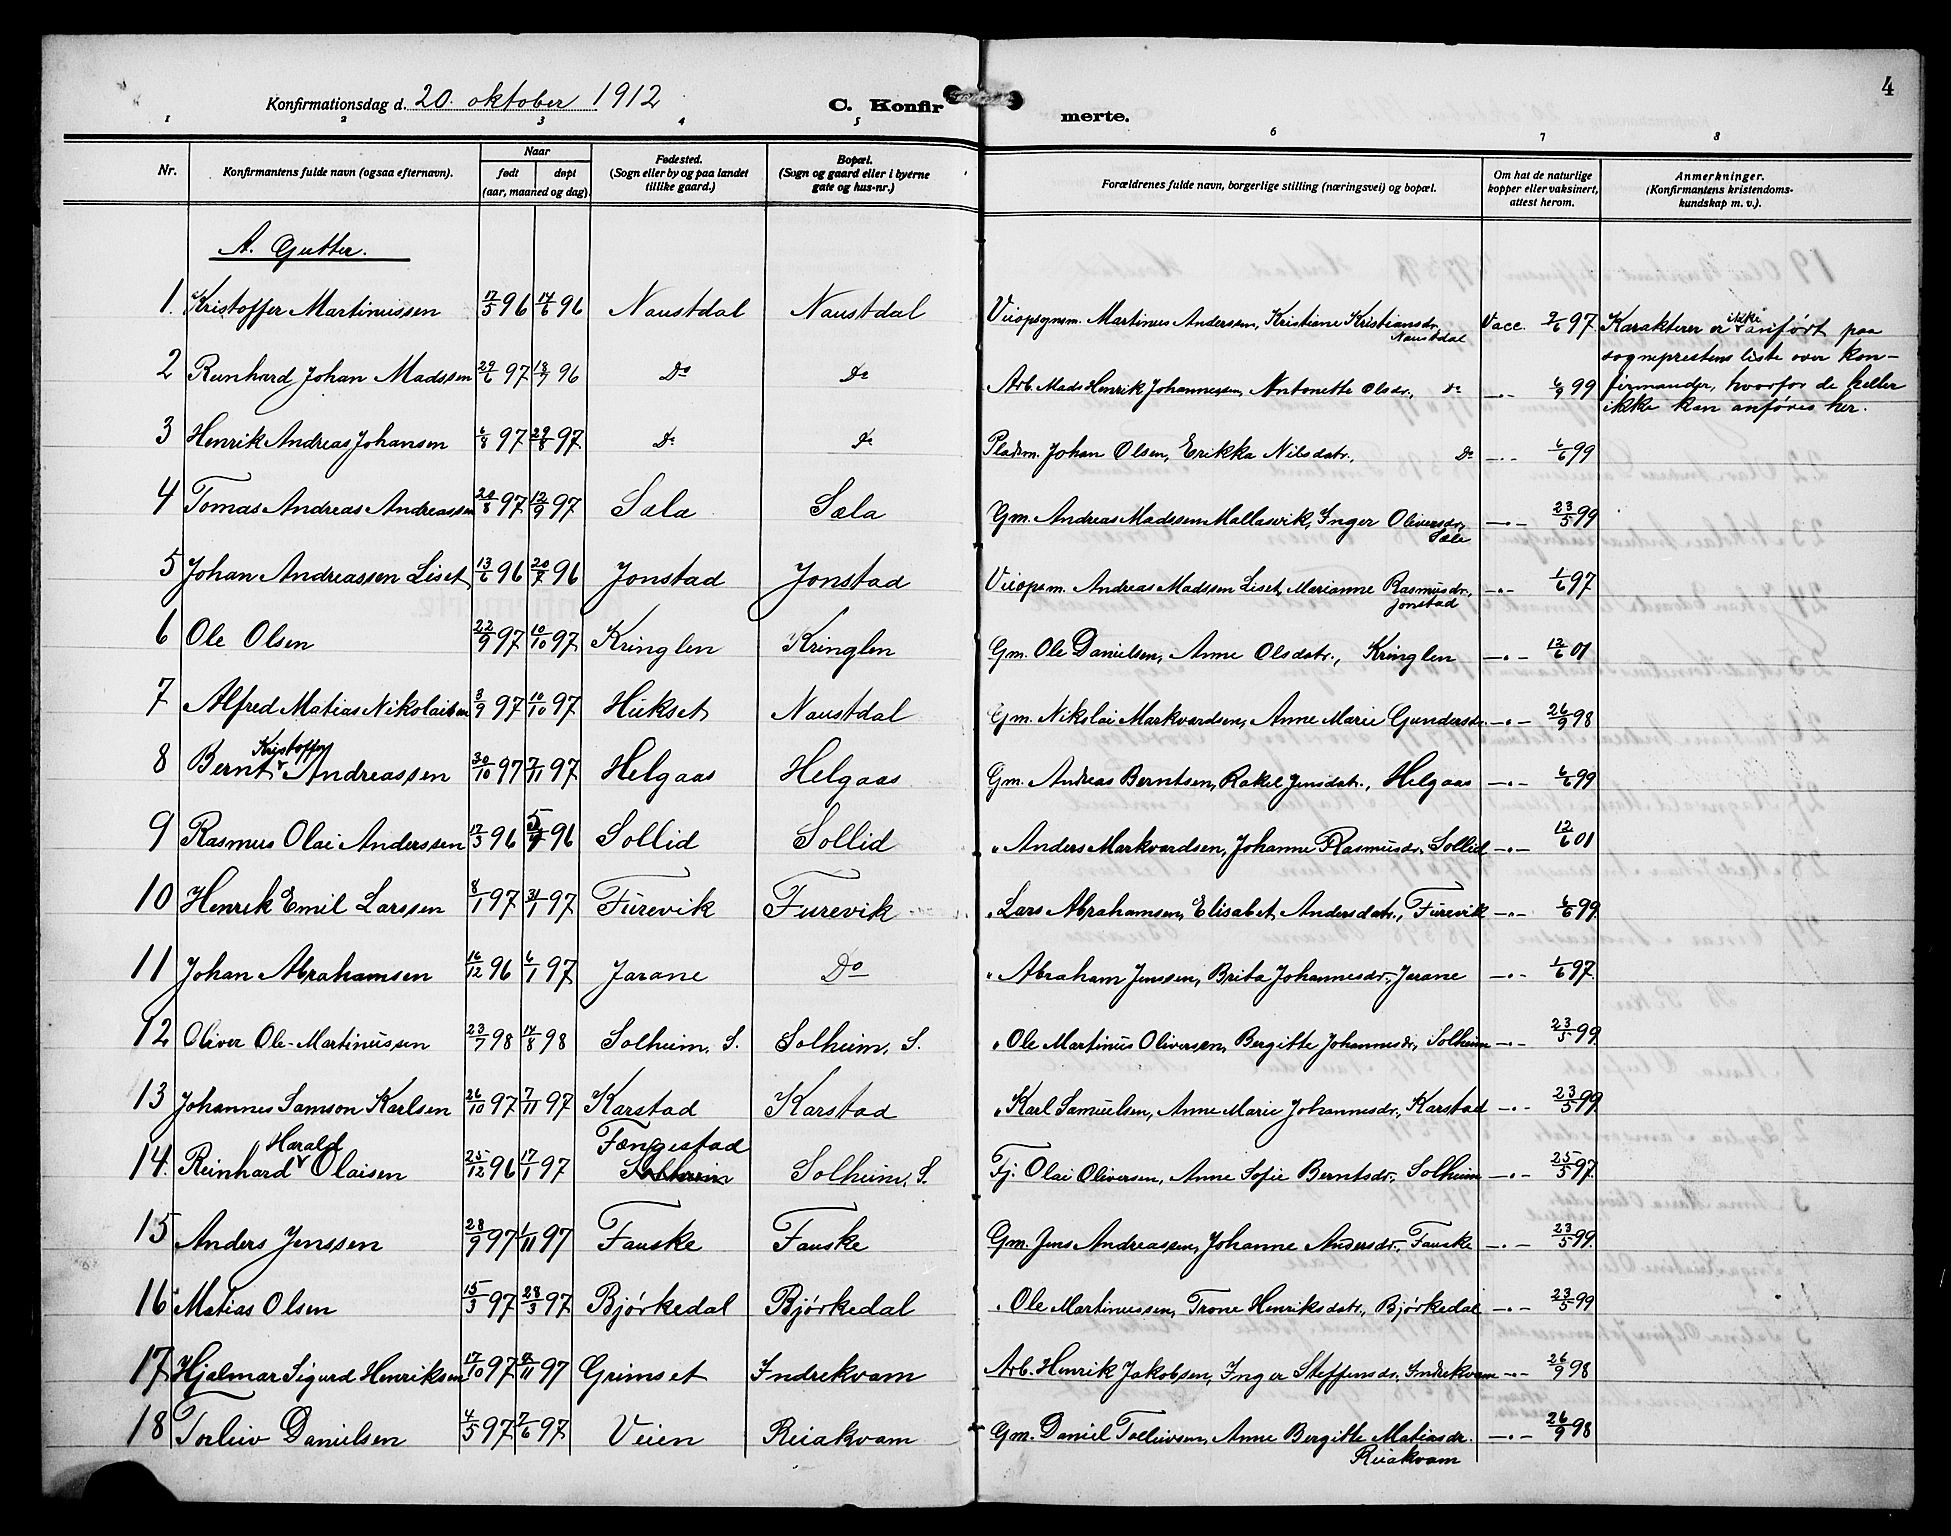 4
Konfirmationsdag d. 20. oktober 1912
C. Konfirmerte.
1 2 3 4 5 6 7 8
Nr. Konfirmantens fulde navn (ogsaa efternavn). Naar født døpt (aar, maaned og dag). Fødested. (Sogn eller by og paa landet tillike gaard.) Bopæl. (Sogn og gaard eller i byerne gate og hus-nr.) Forældrenes fulde navn, borgerlige stilling (næringsvei) og bopæl. Om hat de naturlige kopper eller vaksinert, attest herom. Anmerkninger. (Konfirmantens kristendomskundskap m. v.).
A. Gutter.
1. Kristoffer Martinussen 17/5 96 14/6 96 Naustdal Naustdal Veiopsynsm. Martinus Anderssen, Kristiane Kristiansdr., Naustdal Vacc. 2/6 97
Karakterer er ikke anført paa
sogneprestens liste over kon-
firmander, hvorfor de heller
ikke kan anføres her.
2 Reinhard Johan Madssen 29/6 97 18/7 96 Do Do Arb. Mads Henrik Johannessen, Antonette Olsdr., do —"— 6/9 99
3 Henrik Andreas Johansen 6/8 97 29/8 97. Do Do Pladsm. Johan Olsen, Erikka Nilsdatr., Do —"— 6/6 99
4 Tomas Andreas Andreassen 20/8 97 12/9 97 Sæla Sæla Gm. Andreas Madssen Mallasvik, Inger Oliversdr., Sæle —"— 23/5 99
5 Johan Andreassen Liset 13/6 96 20/7 96 Jonstad Jonstad Veiopsm. Andreas Madssen Liset, Marianne Rasmusdr., Jonstad —"— 1/6 97
6 Ole Olsen 22/9 97 10/10 97 Kringlen Kringlen Gm. Ole Danielsen, Anne Olsdatr., Kringlen —"— 12/6 01
7 Alfred Matias Nikolaisen 3/9 97 10/10 97 Hukset Naustdal Gm. Nikolai Markvardsen, Anne Marie Gundersdr. —"— 26/9 98
8 Bernt Kristoffer Andreassen 30/10 97 7/11 97 Helgaas Helgaas Gm. Andreas Berntsen, Rakel Jensdatr., Helgaas —"— 6/6 99
9 Rasmus Olai Anderssen 17/3 96 5/4 96 Sollid Sollid " Anders Markvardsen, Johanne Rasmusdr., Sollid —"— 12/6 01
10 Henrik Emil Larssen 8/1 97 31/1 97 Furevik Furevik " Lars Abrahamsen, Elisabet Andersdatr., Furevik —"— 6/6 99
11 Johan Abrahamsen 16/12 96 6/1 97 Jarane Do " Abraham Jenssen, Brita Johannesdr., Jarane —"— 1/6 97.
12 Oliver Ole-Martinussen 23/7 98 14/8 98 Solheim, S. Solheim, S. " Ole Martinus Oliversen, Bergitte Johannesdr., Solheim —"— 23/5 99
13 Johannes Samson Karlsen 26/10 97 7/11 97 Karstad Karstad " Karl Samuelsen, Anne Marie Johannesdr., Karstad —"— 23/5 99
14. Reinhard Harald Olaisen 25/12 96 17/1 97 Fængestad Solheim Solheim, S. Fj. Olai Oliversen, Anne Sofie Berntsdr., Solheim —"— 25/5 97.
15 Anders Jenssen 28/9 97 1/11 97 Fauske Fauske Gm. Jens Andreassen, Johanne Andersdr., Fauske —"— 23/5 99.
16 Matias Olsen 15/3 97 28/3 97 Bjørkedal Bjørkedal " Ole Martinussen, Trone Henriksdatr., Bjørkedal —"— 23/5 99
17 Hjalmar Sigurd Henriksen 17/10 97 7/11 97 Grimset Indrekvam Arb. Henrik Jakobsen, Inger Steffensdr., Indrekvam —"— 26/9 98
18 Torleiv Danielsen 4/5 97. 7/6 97. Veien Reiakvam Gm. Daniel Tolleivsen, Anne Bergitte Matiasdr. Reiakvam —"— 26/9 98